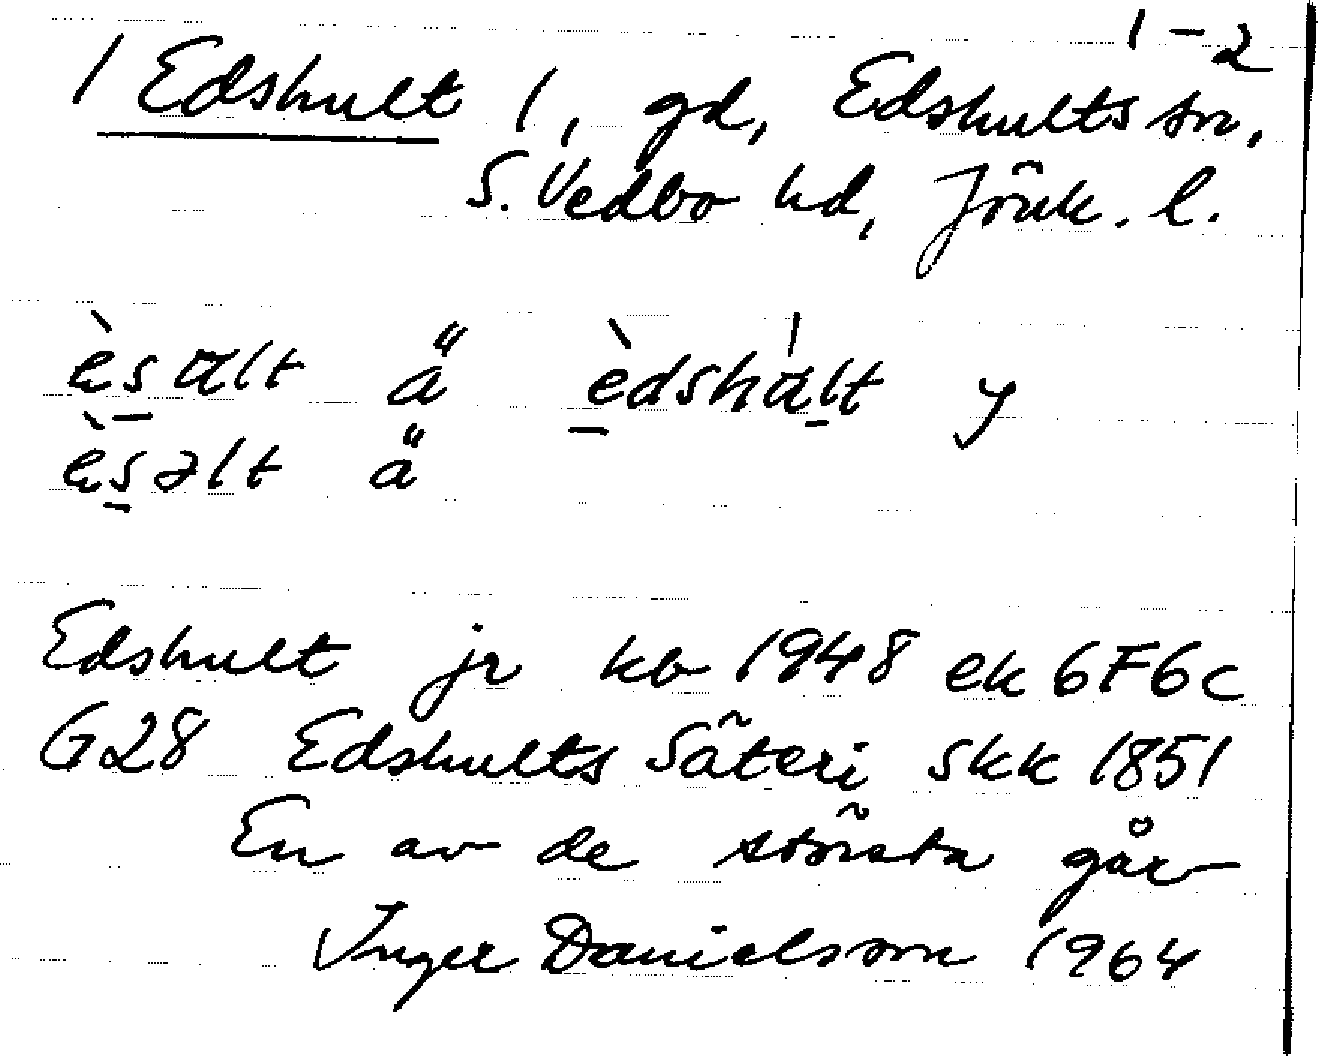 1-2
1 Edshult 1, gd, Edshults sn,
S. Vedbo hd, Jönk. l.
èsalt ä èdshàlt y
èsəlt ä
Edshult jr kb 1948 ek 6F6c
G28 Edshults Säteri skk 1851
En av de största går-
Inger Danielsson 1964